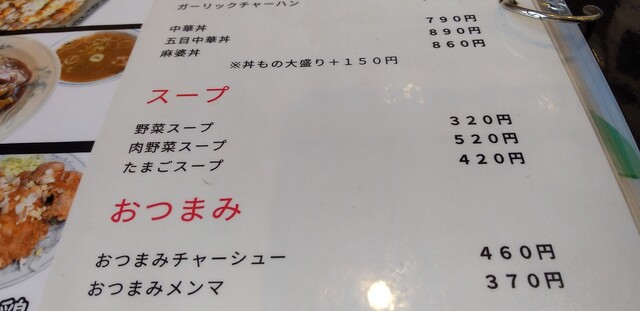 ガーリックチャーハン
中華丼 790円
五目中華丼 890円
麻婆丼 860円
※丼もの大盛り＋150円
スープ
野菜スープ 320円
肉野菜スープ 520円
たまごスープ 420円
おつまみ
おつまみチャーシュー 460円
おつまみメンマ 370円